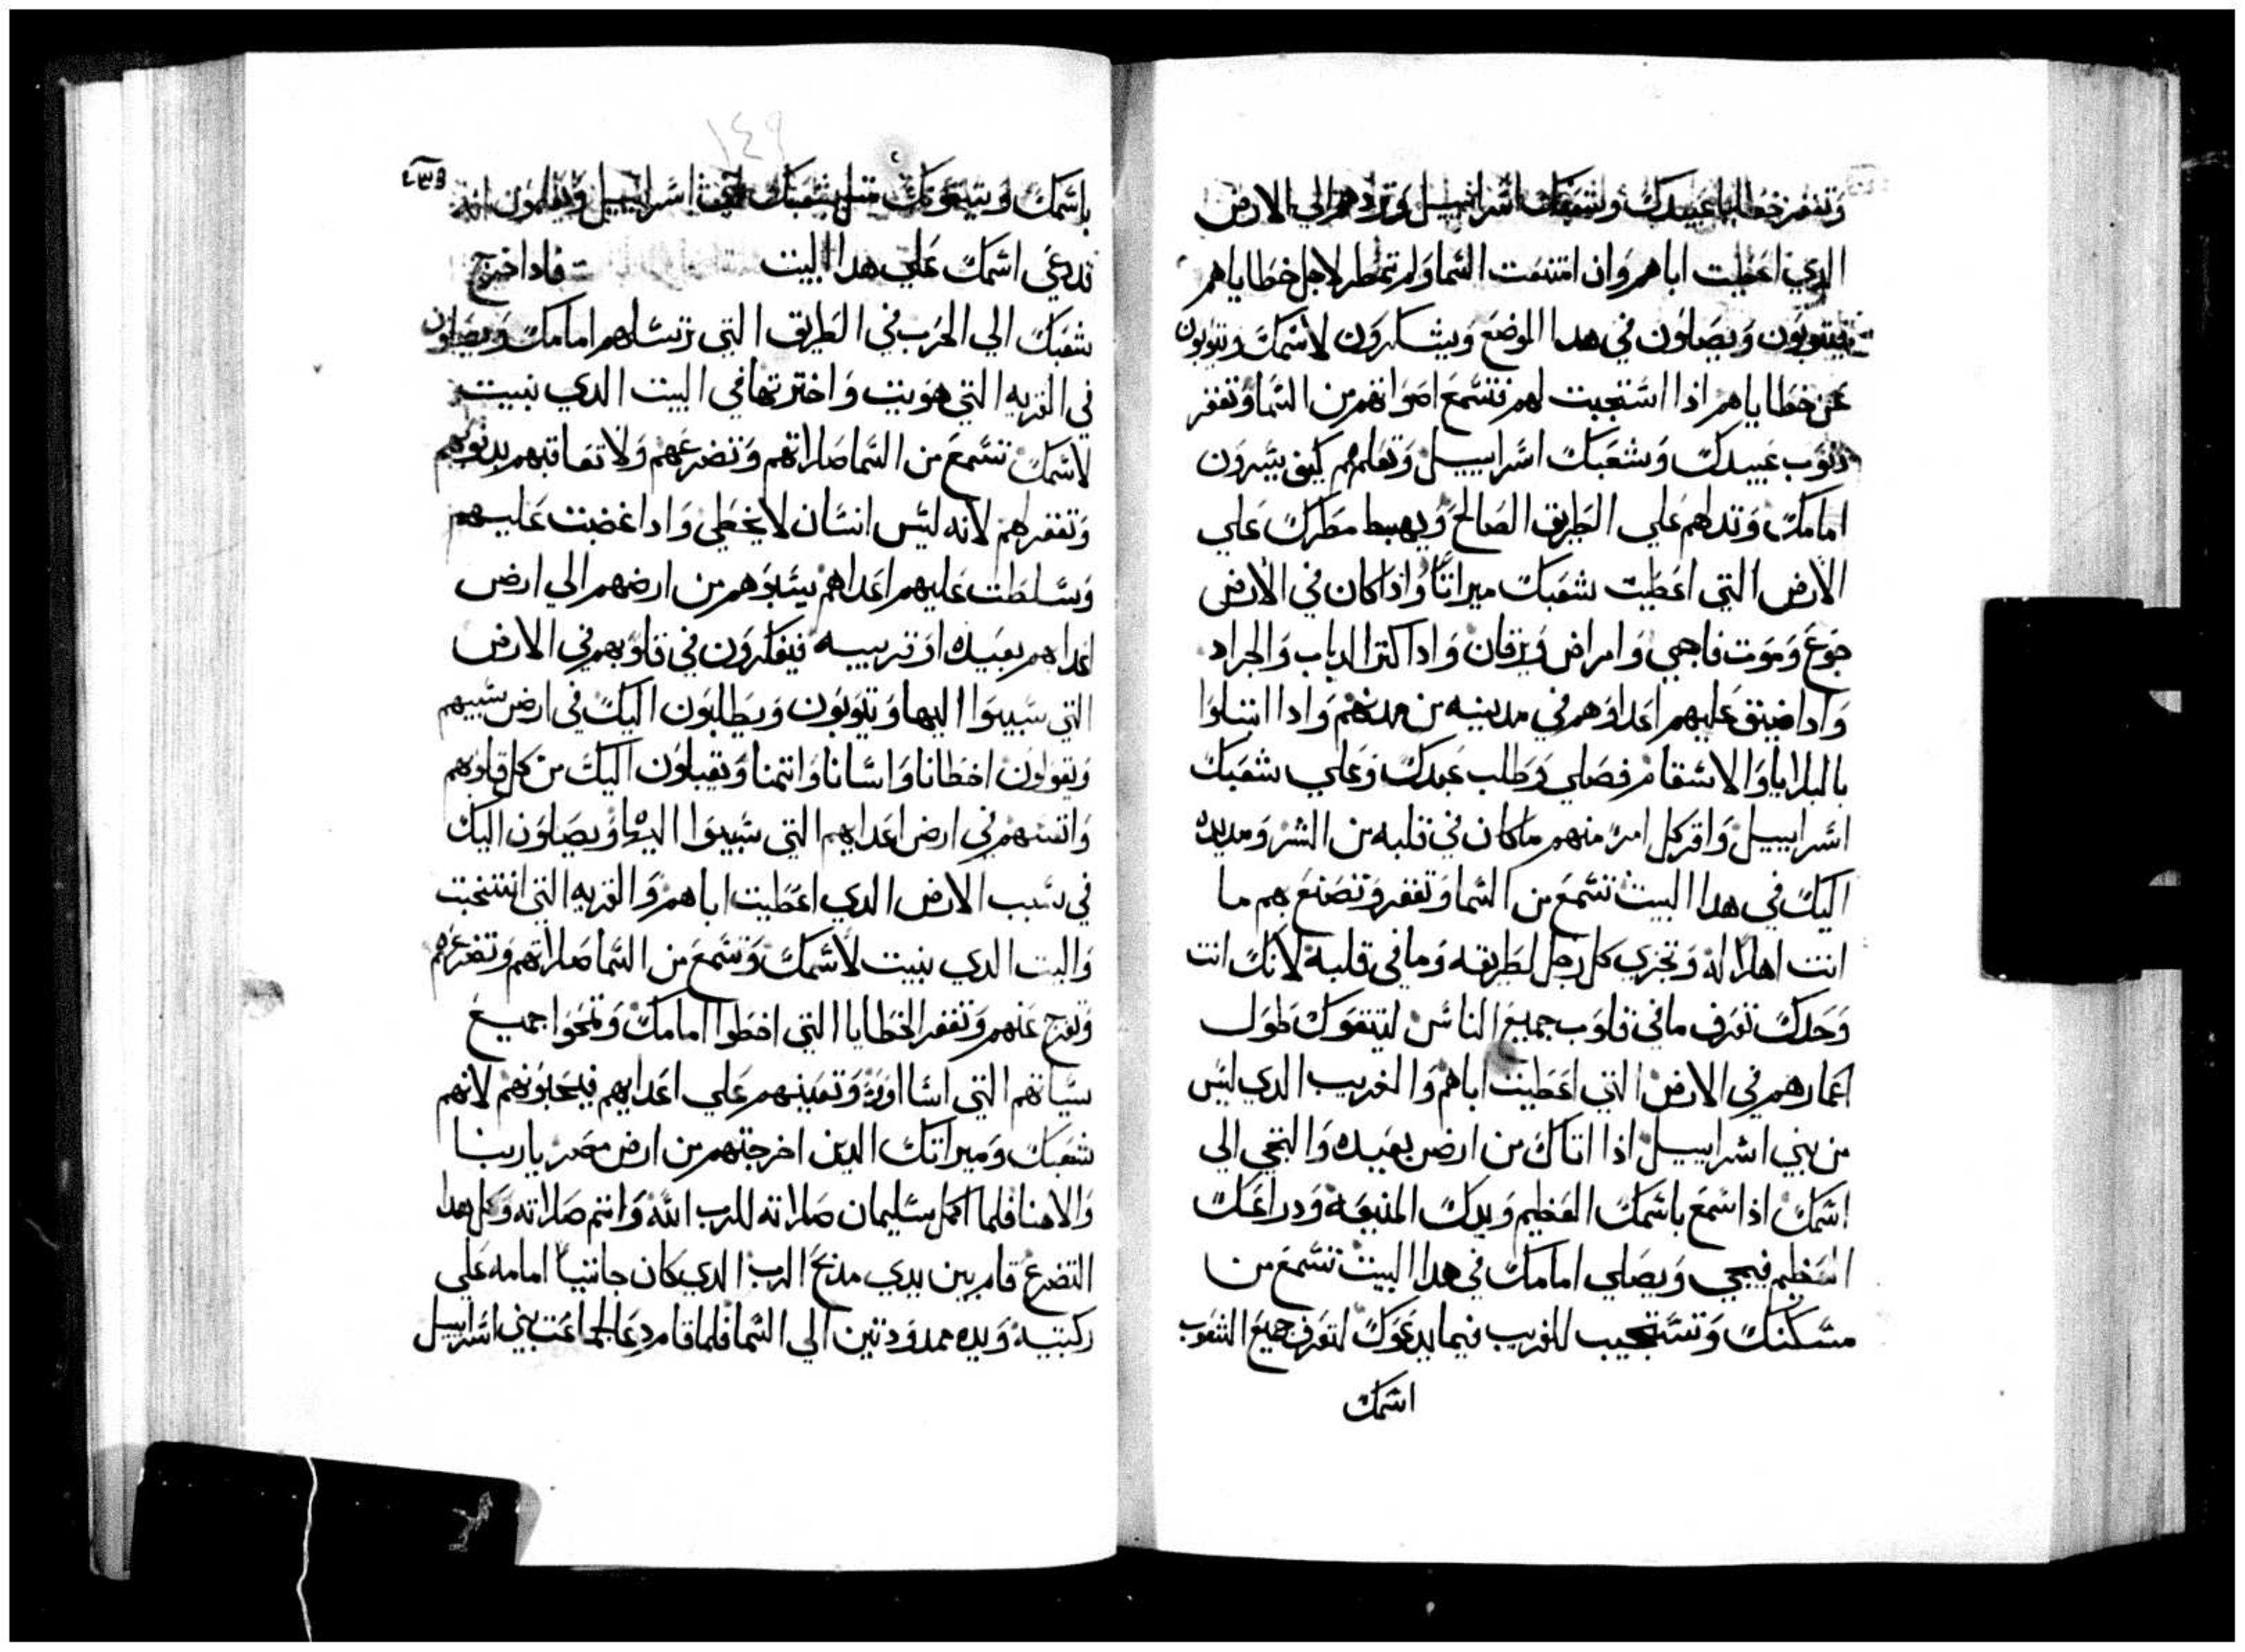 وتغفر خطايا عبيدك وشعبك اسراييل وتردهم الي الارض
الدي اعطيت اباهم وان امتنعت السما ولم تمطر لاجل خطاياهم
فيتوبون ويصلون في هدا الموضع ويشكرون لاسمك ويتوبون
عن خطاياهم اذا استجبت لهم فتسمع اصواتهم من السما وتغفر
دنوب عبيدك وشعبك اسراييل وتعلمهم كيف يسرون
امامك وتدلهم علي الطريق الصالح ويهبط مطرك علي
الارض التي اعطيت شعبك ميراتا وادا كان في الارض
جوع وموت فاجي وامراض ويرقان وادا كتر الدباب والجراد
وادا ضيق عليهم اعداوهم في مدينه من مدنهم وادا ابتلوا
بالبلايا والاسقام فصلي وطلب عبدك وعلي شعبك
اسراييل واقر كل امر منهم ماكان في قلبه من الشر ومد يده
اليك في هدا البيت تسمع من السما وتغفر وتصنع بهم ما
انت اهلا له وتجزي كل رجل لطريقه وما في قلبه لانك انت
وحدك تعرف مافي قلوب جميع الناس ليتقوك طول
اعمارهم في الارض التي اعطيت اباهم والغريب الدي ليس
من بني اسراييل اذا اتاك من ارض بعيده والتجي الي
اسمك اذا سمع باسمك العظيم ويدك المنيعه ودراعك
العظيم فيجي ويصلي امامك في هدا البيت تسمع من
مسكنك وتستجيب للغريب فيما يدعوك لتعرف جميع الشعوب
اسمك
١٤٩
باسمك ويتقونك متل شعبك اسراييل ويعلمون انه
تدعي اسمك علي هدا البيت فادا خرج
شعبك الي الحرب في الطريق التي ترسلهم امامك ويصلون
في القريه التي هويت واخترتها في البيت الدي بنيت
لاسمك تسمع من السما صلاتهم وتضرعهم ولا تعاقبهم بدنوبهم
وتغفر لهم لانه ليس انسان لا يخطي وادا غضبت عليهم
وسلطت عليهم اعداهم يسبوهم من ارضهم الي ارض
اعداهم بعيده او قريبه فيفكرون في قلوبهم في الارض
التي سبيوا اليها ويتوبون ويطلبون اليك في ارض سبيهم
ويقولون اخطانا واسانا واتمنا ويقبلون اليك من كل قلوبهم
وانفسهم في ارض اعدايهم التي سبيوا اليها ويصلون اليك
في سبب الارض الدي اعطيت اباهم والقريه التي انتخبت
والبيت الدي بنيت لاسمك وتسمع من السما صلاتهم وتضرعهم
وتفرج عنهم وتغفر الخطايا التي اخطوا امامك وتمحوا جميع
سياتهم التي اساوا وتعينهم علي اعدايهم لانهم
شعبك وميراتك الدين اخرجتهم من ارض مصر ياربنا
والاهنا فلما اكمل سليمان صلاته للرب الله واتم صلاته وكل هدا
التضرع قام بين يدي مدبح الرب الدي كان جاتيا امامه علي
ركبتيه ويده ممدودتين الي السما فلما قام دعا لجماعت بني اسراييل